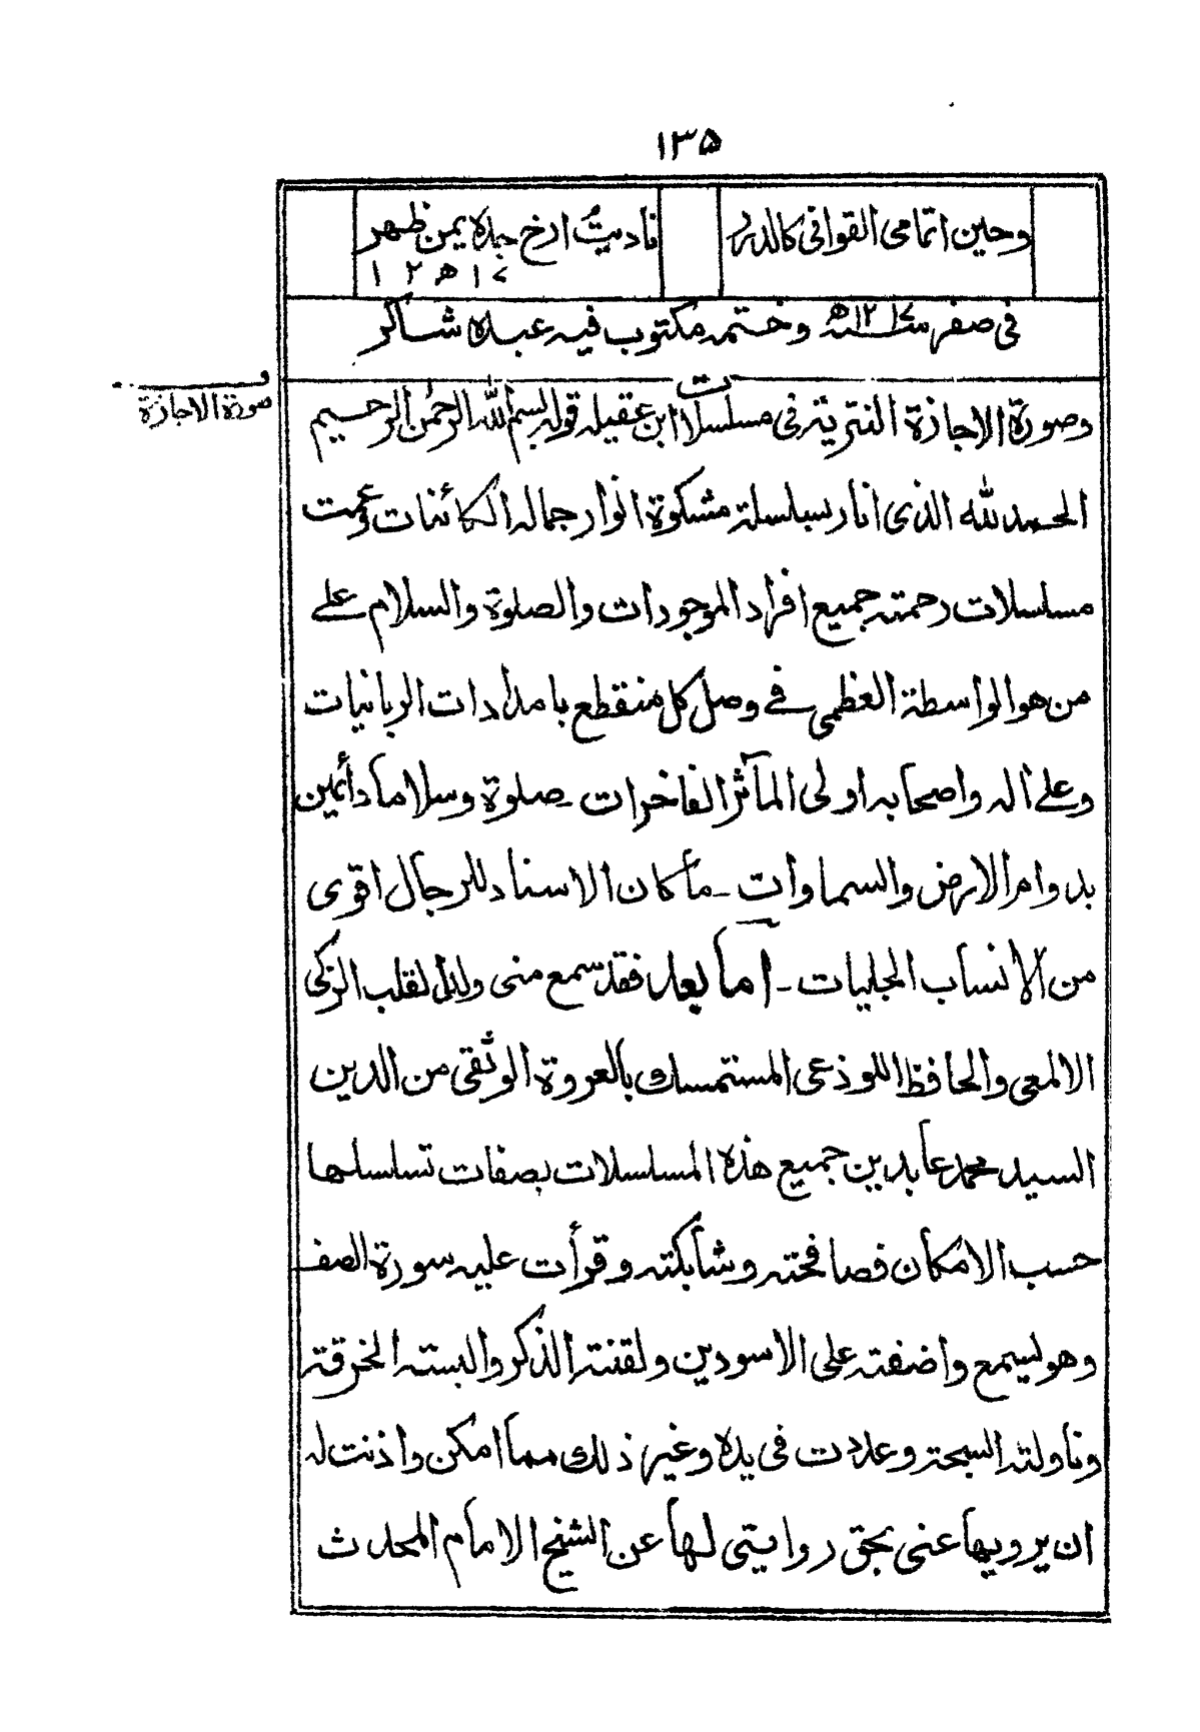 ۱۳۵
وحين اتمامى القوافى كالدرر ناديت ارخ جده يمن ظهر
۱۲۱۷ھ
فى صفر سنه ۱۲۱۷ھ وختمه مكتوب فيه عبده شاكر
صورة الاجازة
وصورة الاجازة النثرية فى مسلسلات ابن عقيله قوله بسم الله الرحمن الرحيم
الحمد لله الذى انار بسلسلة مشكوة انوار جماله الكائنات وعمت
مسلسلات رحمته جميع افراد الموجودات والصلوة والسلام على
من هو الواسطة العظمى فى وصل كل منقطع بامدادات الربانيات
وعلى آله واصحابه اولى المآثر الفاخرات ـ صلوة وسلاما دائمين
بدوام الارض والسماوات ـ ما كان الاسناد للرجال اقوى
من الانساب الجليات ـ اما بعد فقد سمع منى ولدل لقلب الزكى
الالمعى والحافظ اللوذعى المستمسك بالعروة الوثقى من الدين
السيد محمد عابدين جميع هذه المسلسلات بصفات تسلسلها
حسب الامكان فصافحته وشابكته وقرأت عليه سورة الصف
وهو يسمع واضفته على الاسودين ولقنته الذكر والبسته الخرقة
وناولته السبحة وعددت فى يده وغير ذلك مما امكن واذنت له
ان يرويها عنى بحق روايتى لها عن الشيخ الامام المحدث